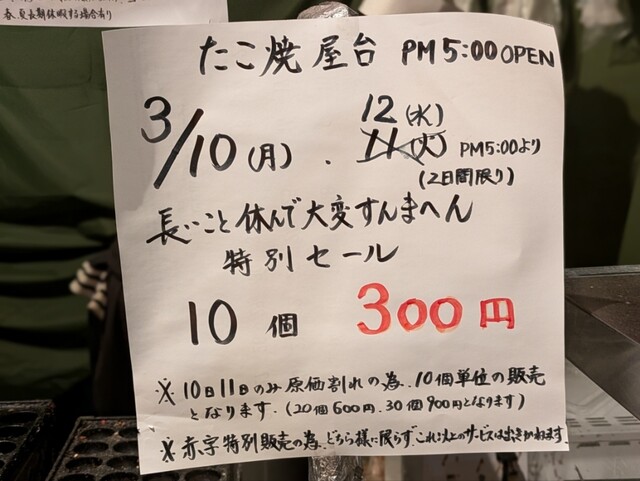 春、夏長期休暇する場合有り
たこ焼屋台 PM5:00 OPEN
12(水)
3/10(月)、11(火) PM5:00より
(2日間限り)
長いこと休んで大変すんまへん
特別セール
10個 300円
※10日11日のみ原価割れの為、10個単位の販売
となります。(20個600円、30個900円となります)
※赤字特別販売の為、どちら様に限らず、これ以上のサービスは出きかねます。